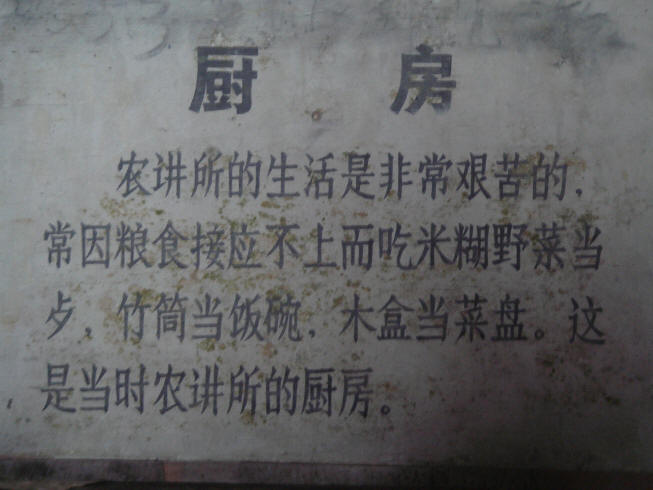 厨房
农讲所的生活是非常艰苦的，
常因粮食接应不上而吃米糊野菜当
歺，竹筒当饭碗，木盒当菜盘。这
是当时农讲所的厨房。